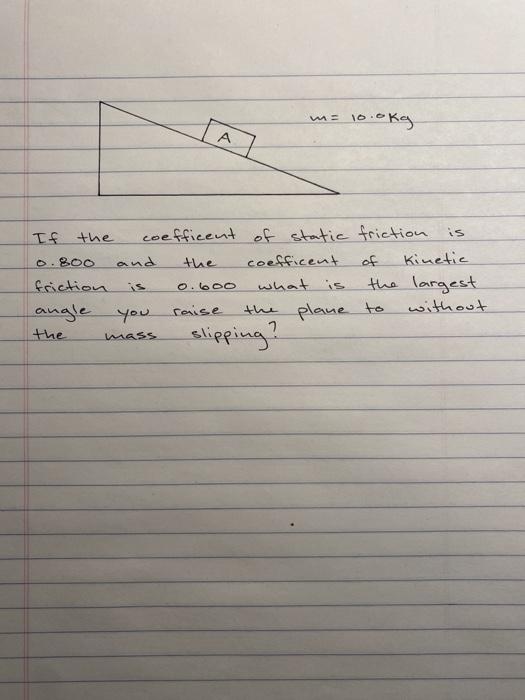 A
m = 10.0kg
If the coefficent of static friction is
0.800 and the coefficent of kinetic
friction is 0.600 what is the largest
angle you raise the plane to without
the mass slipping?